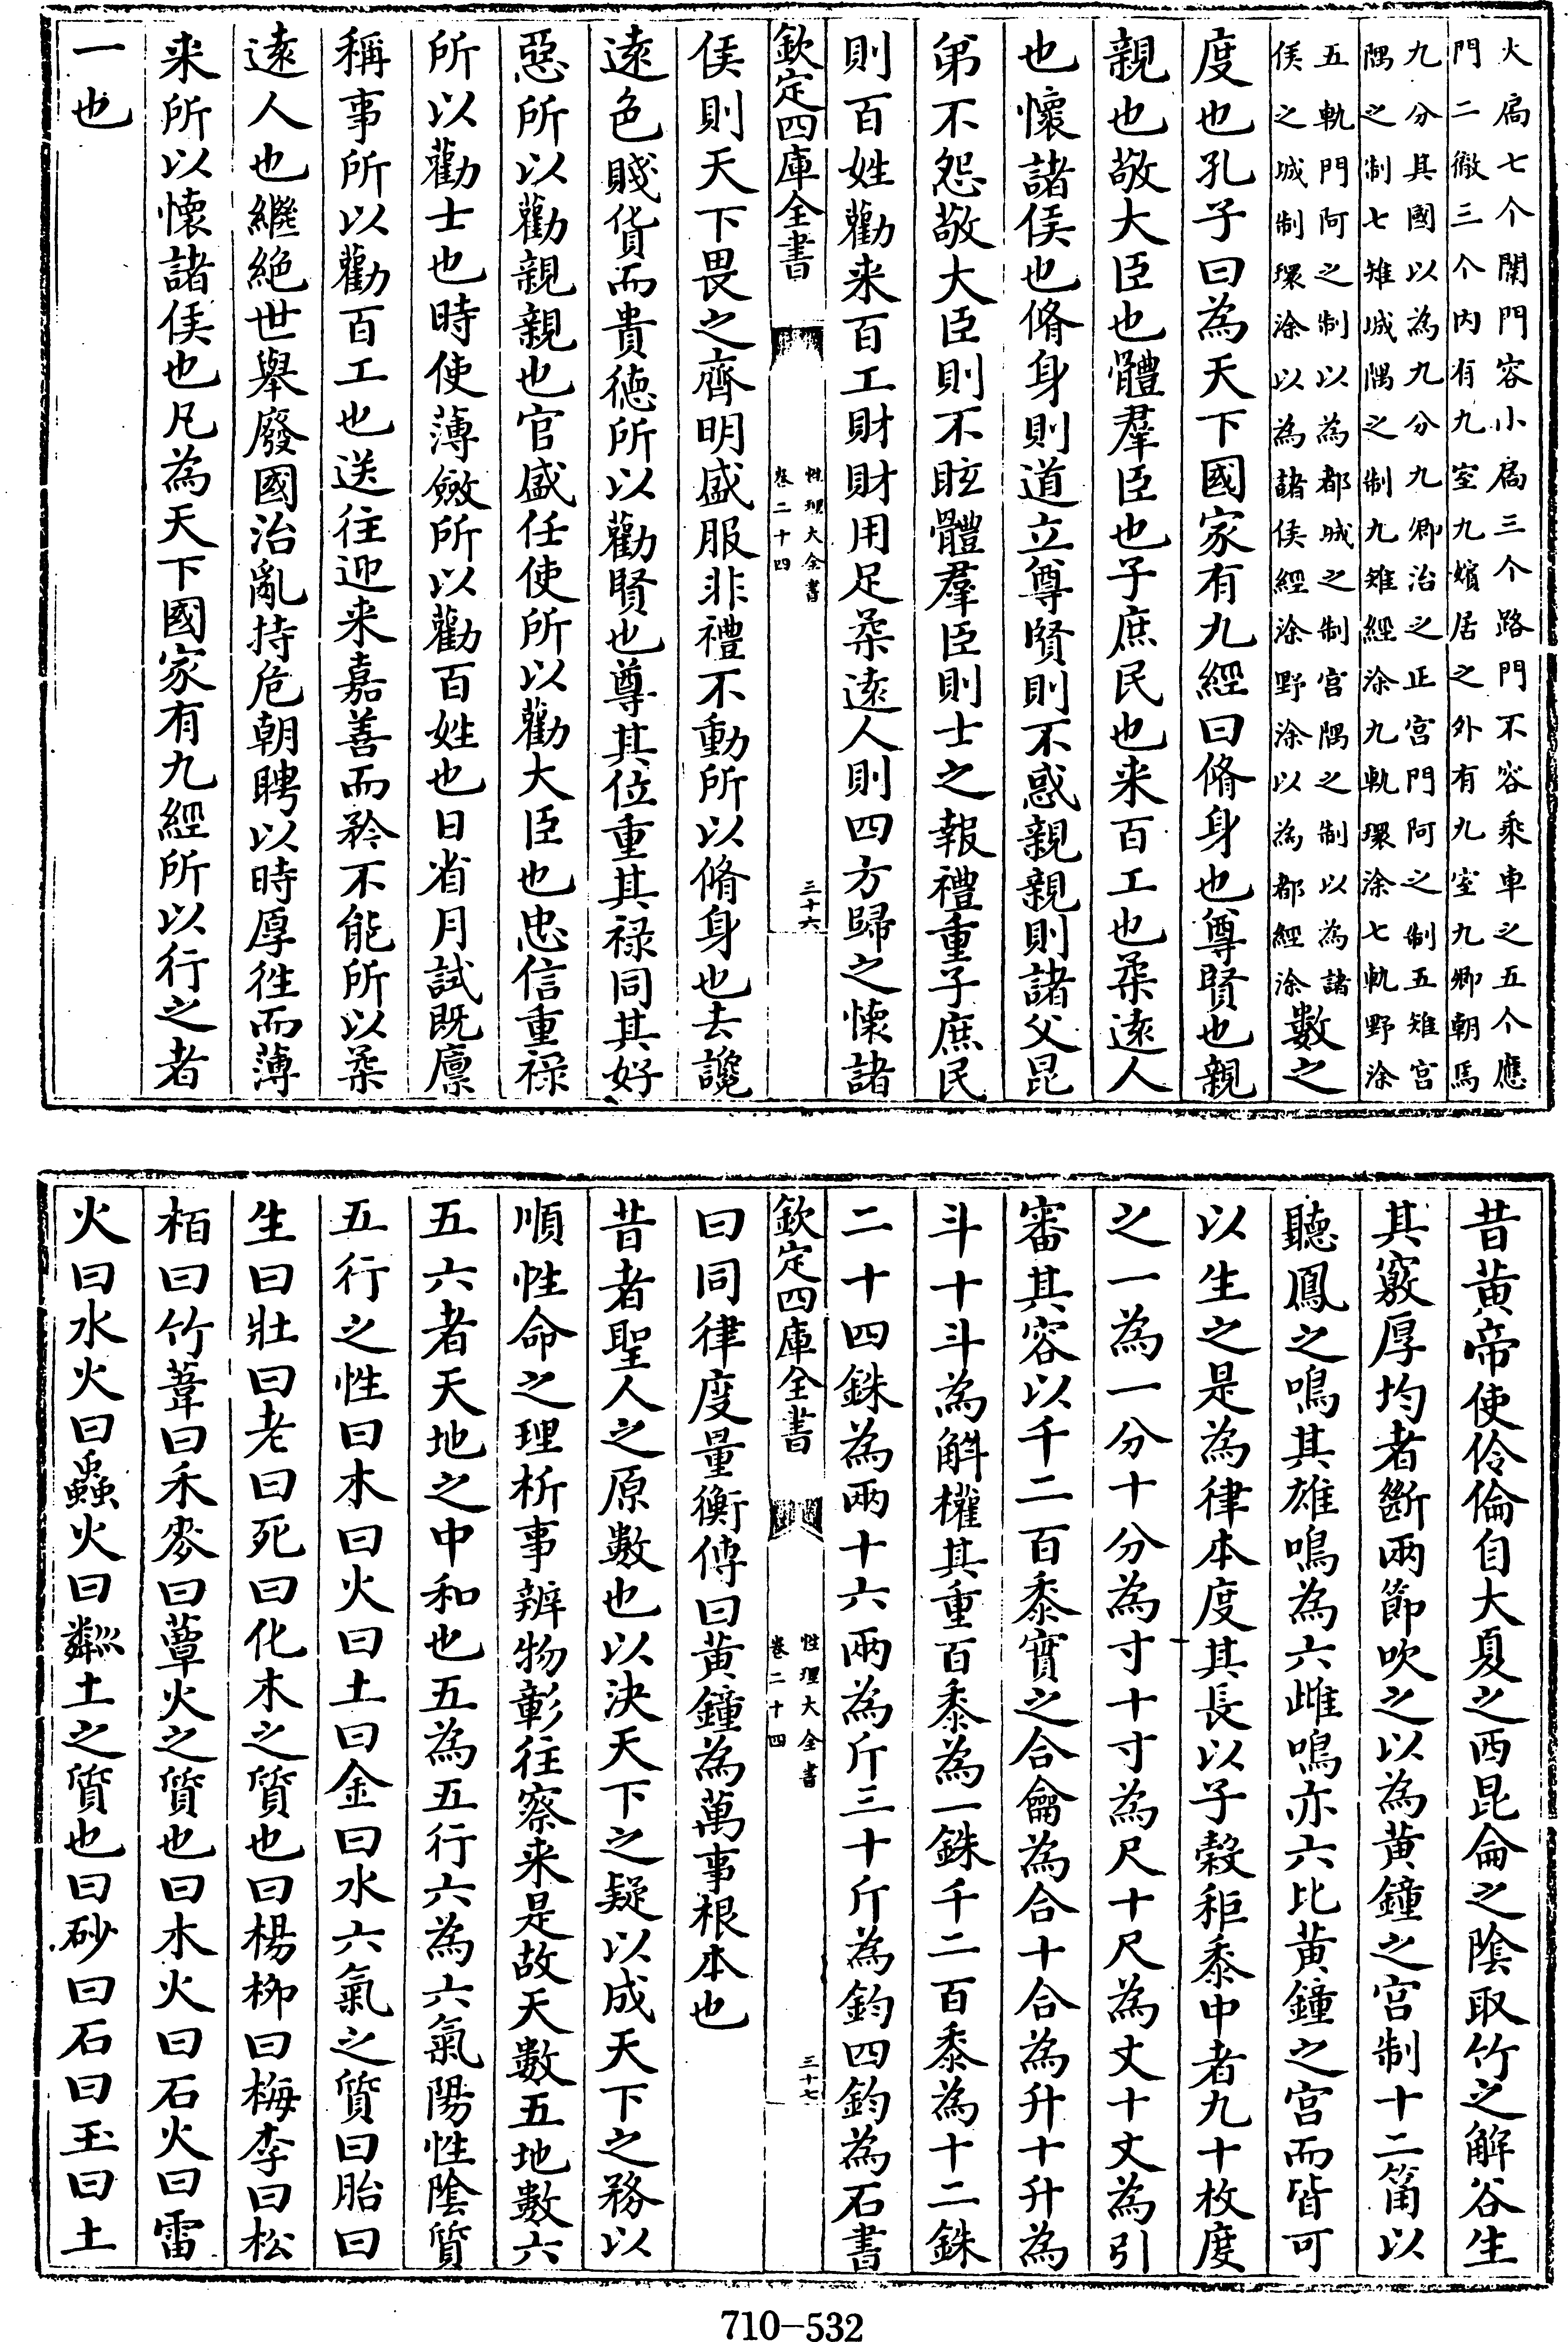 大扃七个闈門容小扃三个路門不容乘車之五个應
門二徹三个内有九室九嬪居之外有九室九卿朝焉
九分其國以為九分九卿治之正宫門阿之制五雉宫
隅之制七雉城隅之制九雉經涂九軌環涂七軌野涂
五軌門阿之制以為都城之制宫隅之制以為諸
侯之城制環涂以為諸侯經涂野涂以為都經涂
數之
度也孔子曰為天下國家有九經曰脩身也尊賢也親
親也敬大臣也體羣臣也子庶民也来百工也柔逺人
也懷諸侯也脩身則道立尊賢則不惑親親則諸父昆
弟不怨敬大臣則不眩體羣臣則士之報禮重子庶民
則百姓勸来百工財財用足柔逺人則四方歸之懐諸
欽定四庫全書
性理大全書
卷二十四
三十六
侯則天下畏之齊明盛服非禮不動所以脩身也去讒
逺色賤貨而貴徳所以勸賢也尊其位重其禄同其好
惡所以勸親親也官盛任使所以勸大臣也忠信重禄
所以勸士也時使薄斂所以勸百姓也日省月試既廪
稱事所以勸百工也送往迎来嘉善而矜不能所以柔
逺人也繼絶世舉廢國治亂持危朝聘以時厚徃而薄
来所以懐諸侯也凡為天下國家有九經所以行之者
一也
昔黄帝使伶倫自大夏之西昆侖之隂取竹之解谷生
其竅厚均者斷兩節吹之以為黄鐘之宫制十二筩以
聽鳳之鳴其雄鳴為六雌鳴亦六比黄鐘之宫而皆可
以生之是為律本度其長以子穀秬黍中者九十枚度
之一為一分十分為寸十寸為尺十尺為丈十丈為引
審其容以千二百黍實之合龠為合十合為升十升為
斗十斗為斛權其重百黍為一銖千二百黍為十二銖
二十四銖為兩十六兩為斤三十斤為鈞四鈞為石書
欽定四庫全書
性理大全書
卷二十四
三十七
曰同律度量衡傳曰黄鐘為萬事根本也
昔者聖人之原數也以決天下之疑以成天下之務以
順性命之理析事辨物彰往察来是故天數五地數六
五六者天地之中和也五為五行六為六氣陽性隂質
五行之性曰木曰火曰土曰金曰水六氣之質曰胎曰
生曰壯曰老曰死曰化木之質也曰楊栁曰梅李曰松
栢曰竹葦曰禾麥曰蕈火之質也曰木火曰石火曰雷
火曰水火曰蟲火曰㷠土之質也曰砂曰石曰玉曰土
710-532